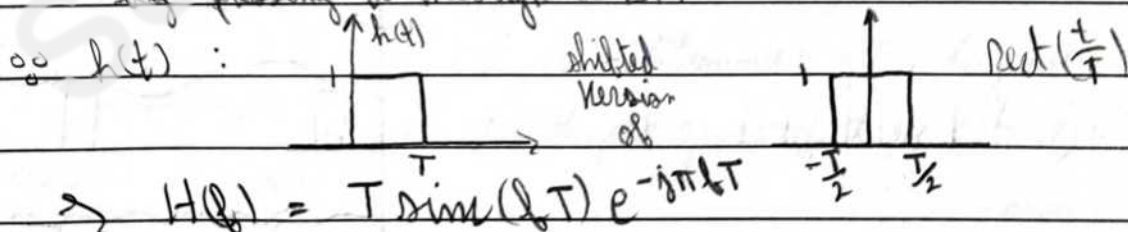 ∴ h(t) :
h(t)
1
T
shifted
version
of
1
-T/2
T/2
Rect(t/T)
→ H(f) = T sinc(fT) e^{-jπfT}